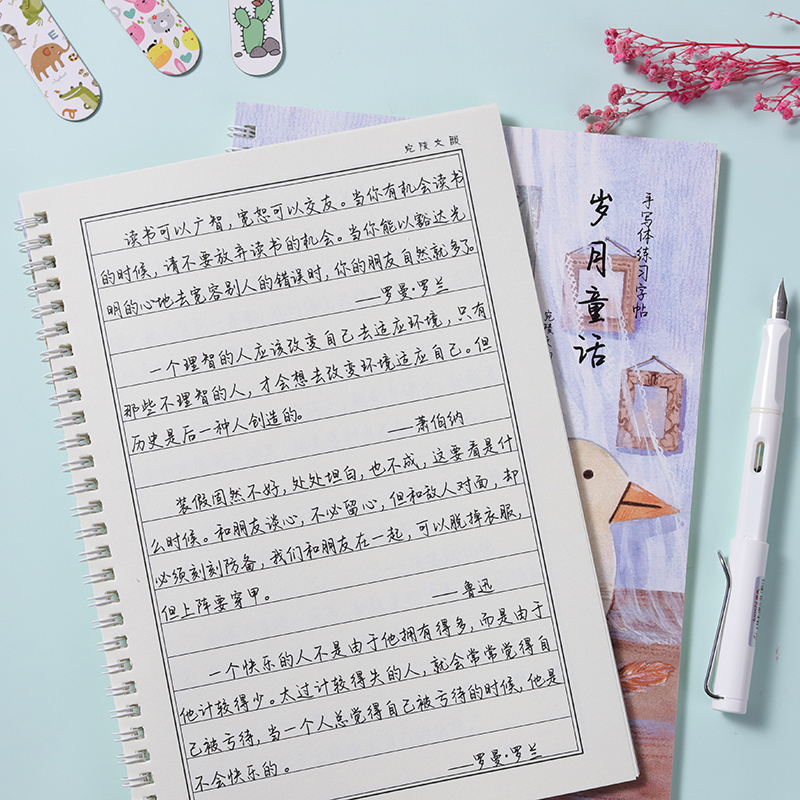 宛陵文阁
读书可以广智，宽恕可以交友。当你有机会读书
的时候，请不要放弃读书的机会。当你能以豁达光
明的心地去宽容别人的错误时，你的朋友自然就多了。
——罗曼·罗兰
一个理智的人应该改变自己去适应环境，只有
那些不理智的人，才会想去改变环境适应自己。但
历史是后一种人创造的。
——萧伯纳
装假固然不好，处处坦白，也不成，这要看是什
么时候。和朋友谈心，不必留心，但和敌人对面，却
必须刻刻防备，我们和朋友在一起，可以脱掉衣服，
但上阵要穿甲。
——鲁迅
一个快乐的人不是由于他拥有得多，而是由于
他计较得少。太过计较得失的人，就会常常觉得自
己被亏待，当一个人总觉得自己被亏待的时候，他是
不会快乐的。
——罗曼·罗兰
手写体练习字帖
岁月童话